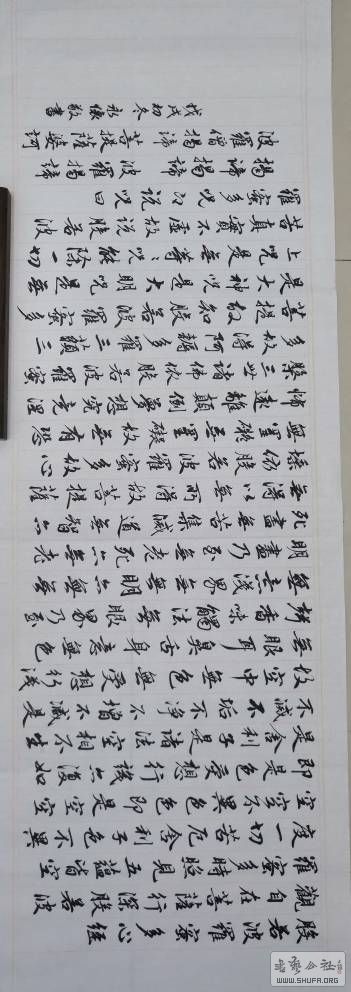 般若波羅蜜多心經
觀自在菩薩行深般若波
羅蜜多時照見五蘊皆空
度一切苦厄舍利子色不異
空空不異色色即是空空
即是色受想行識亦復如
是舍利子是諸法空相不生
不滅不垢不淨不增不減是
故空中無色無受想行識
無眼耳鼻舌身意無色
聲香味觸法無眼界乃至
無意識界無無明亦無無
明盡乃至無老死亦無老
死盡無苦集滅道無智亦
無得以無所得故菩提薩
埵依般若波羅蜜多故心
無罣礙無罣礙故無有恐
怖遠離顛倒夢想究竟涅
槃三世諸佛依般若波羅蜜
多故得阿耨多羅三藐三
菩提故知般若波羅蜜多
是大神咒是大明咒是無
上咒是無等等咒能除一切
苦真實不虛故說般若波
羅蜜多咒即說咒曰
揭諦揭諦波羅揭諦
波羅僧揭諦菩提薩婆訶
戊戌初冬永德敬書
WWW.SHUFA.ORG